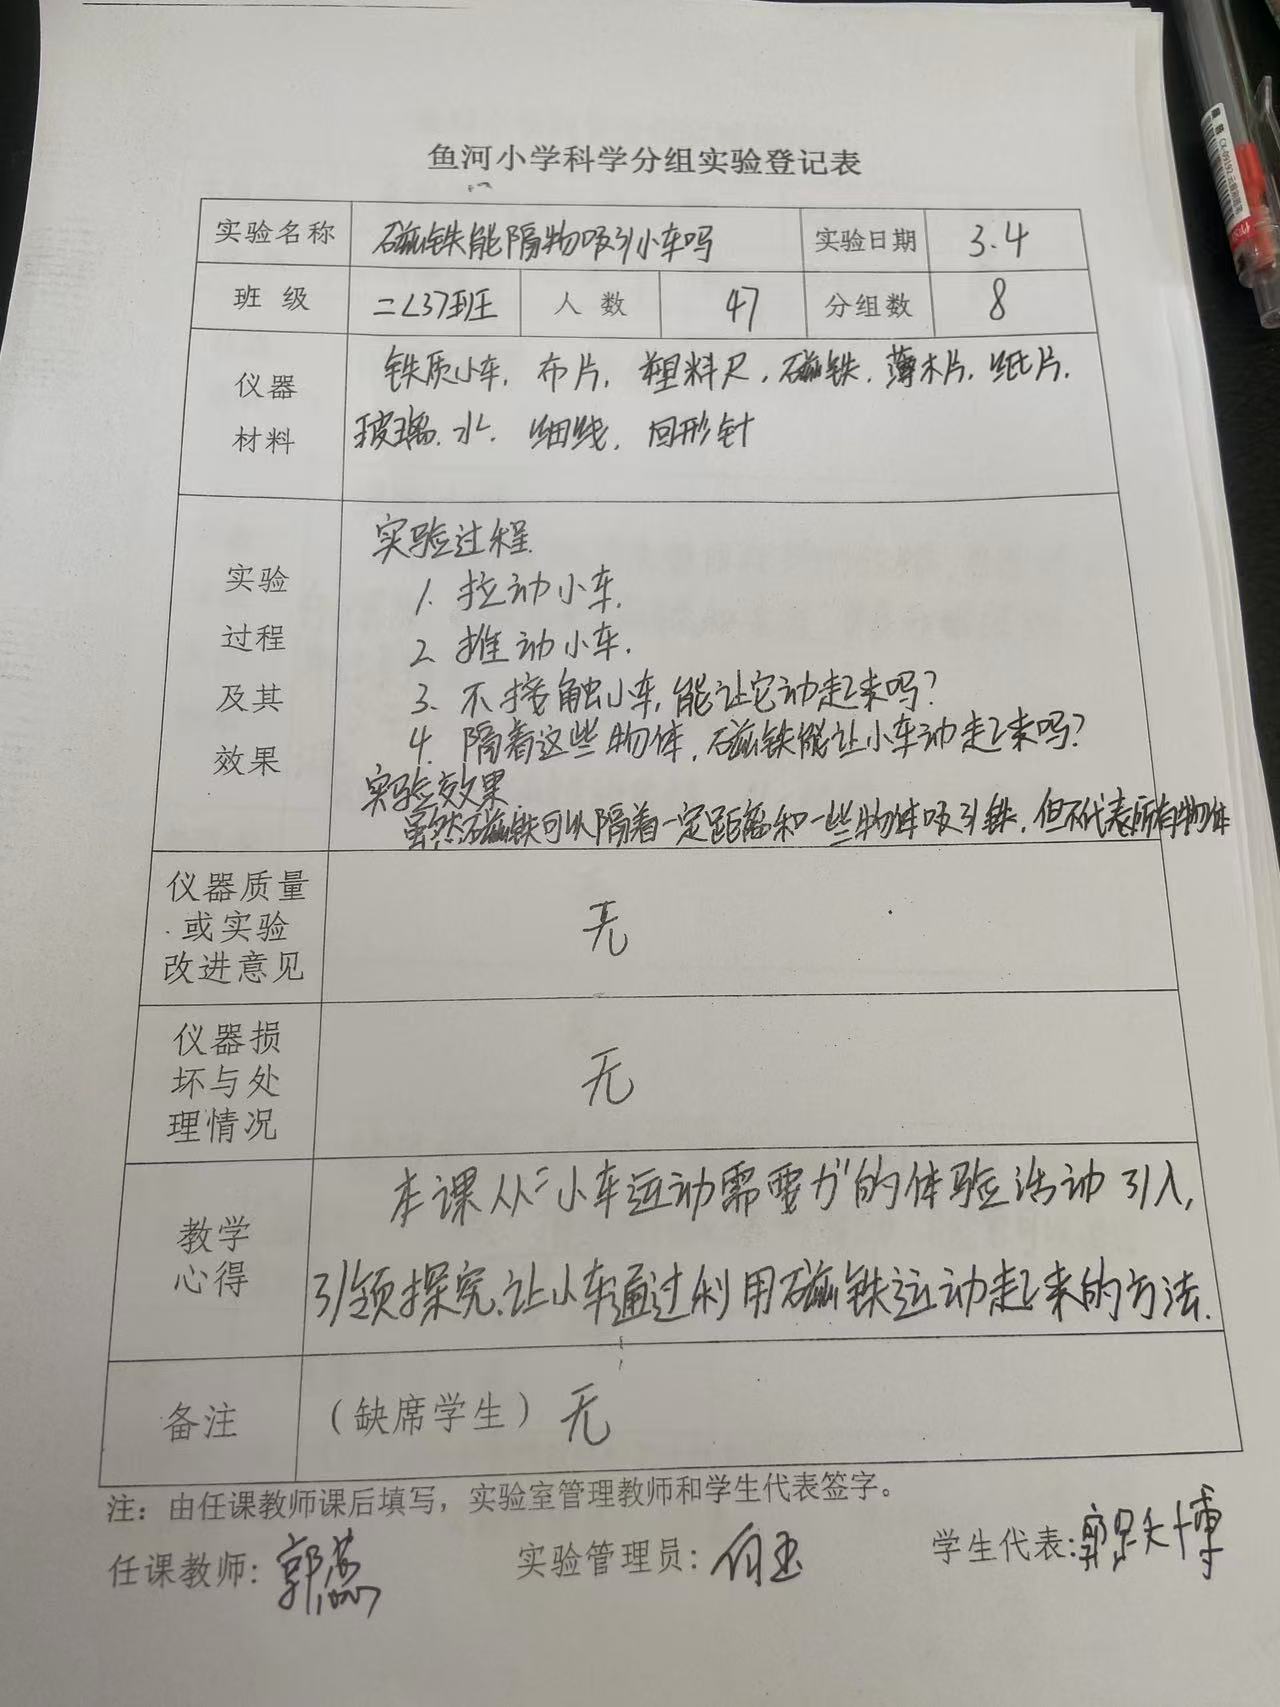 鱼河小学科学分组实验登记表
实验名称 磁铁能隔物吸引小车吗 实验日期 3.4
班 级 二(3)班 人 数 47 分组数 8
仪器 铁质小车, 布片, 塑料尺, 磁铁, 薄木片, 纸片,
材料 玻璃, 水, 细线, 回形针
实验过程
实验 1. 拉动小车.
过程 2. 推动小车.
及其 3. 不接触小车, 能让它动起来吗?
效果 4. 隔着这些物体, 磁铁能让小车动起来吗?
实验效果
虽然磁铁可以隔着一定距离和一些物体吸引铁, 但不代表所有物体
仪器质量
或实验 无
改进意见
仪器损
坏与处 无
理情况
本课从"小车运动需要力"的体验活动引入,
教学
心得
引领探究, 让小车通过利用磁铁运动起来的方法.
备注 (缺席学生) 无
注: 由任课教师课后填写, 实验室管理教师和学生代表签字。
任课教师: 郭蕊 实验管理员: 学生代表: